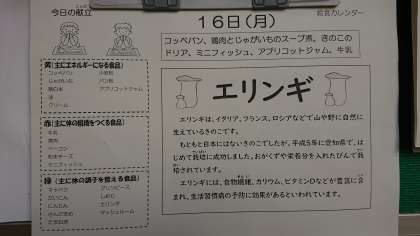 今日の献立
給食カレンダー
16日(月)
コッペパン、鶏肉とじゃがいものスープ煮、きのこの
ドリア、ミニフィッシュ、アプリコットジャム、牛乳
黄(主にエネルギーになる食品)
コッペパン
じゃがいも
精白米
油
クリーム
小麦粉
パン粉
アプリコットジャム
赤(主に体の組織をつくる食品)
牛乳
鶏肉
ベーコン
粉末チーズ
ミニフィッシュ
緑(主に体の調子を整える食品)
キャベツ
だいこん
にんじん
たまねぎ
グリンピース
しめじ
エリンギ
マッシュルーム
エリンギ
エリンギは、イタリア、フランス、ロシアなどで山や野に自然に
生えているきのこです。
もともと日本にはないきのこでしたが、平成5年に愛知県で、は
じめて栽培に成功しました。おがくずや栄養分を入れたびんで栽
培されています。
エリンギには、食物繊維、カリウム、ビタミンDなどが豊富に含
まれ、生活習慣病の予防に効果があるといわれています。